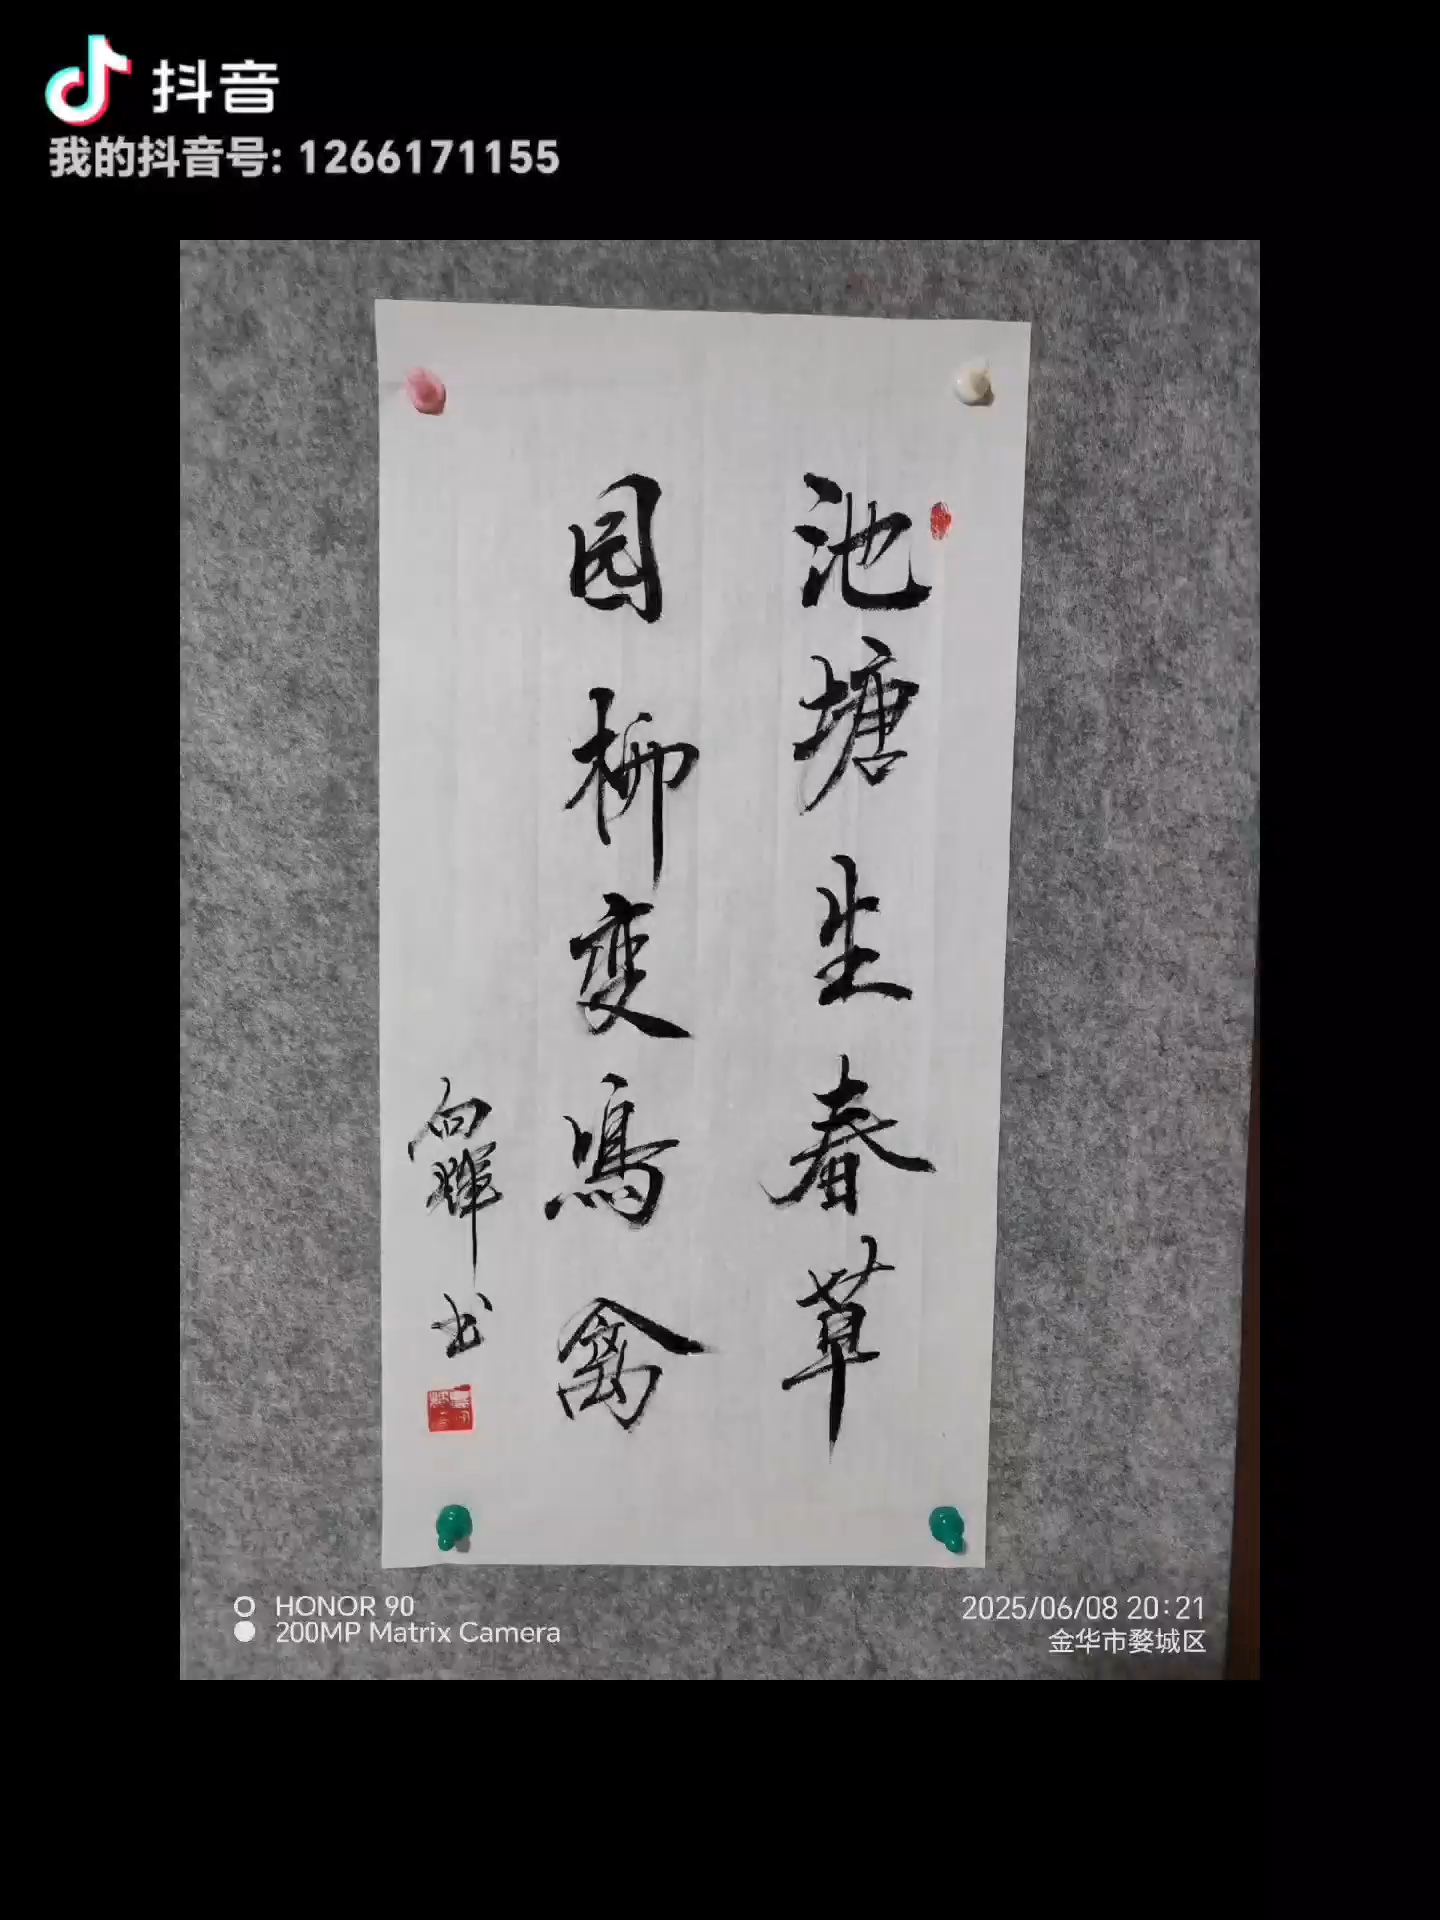 抖音
我的抖音号: 1266171155
池塘生春草
园柳变鸣禽
向辉书
HONOR 90
200MP Matrix Camera
2025/06/08 20:21
金华市婺城区